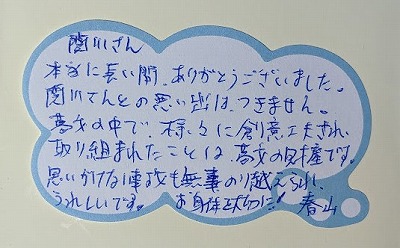 関川さん
本当に長い間、ありがとうございました。
関川さんとの思い出は、つきません。
高文の中で、様々に創意工夫され、
取り組まれたことは、高文の財産です。
思いがけない事故も無事のり越えられ、
うれしいです。 お身体を大切に! 春山